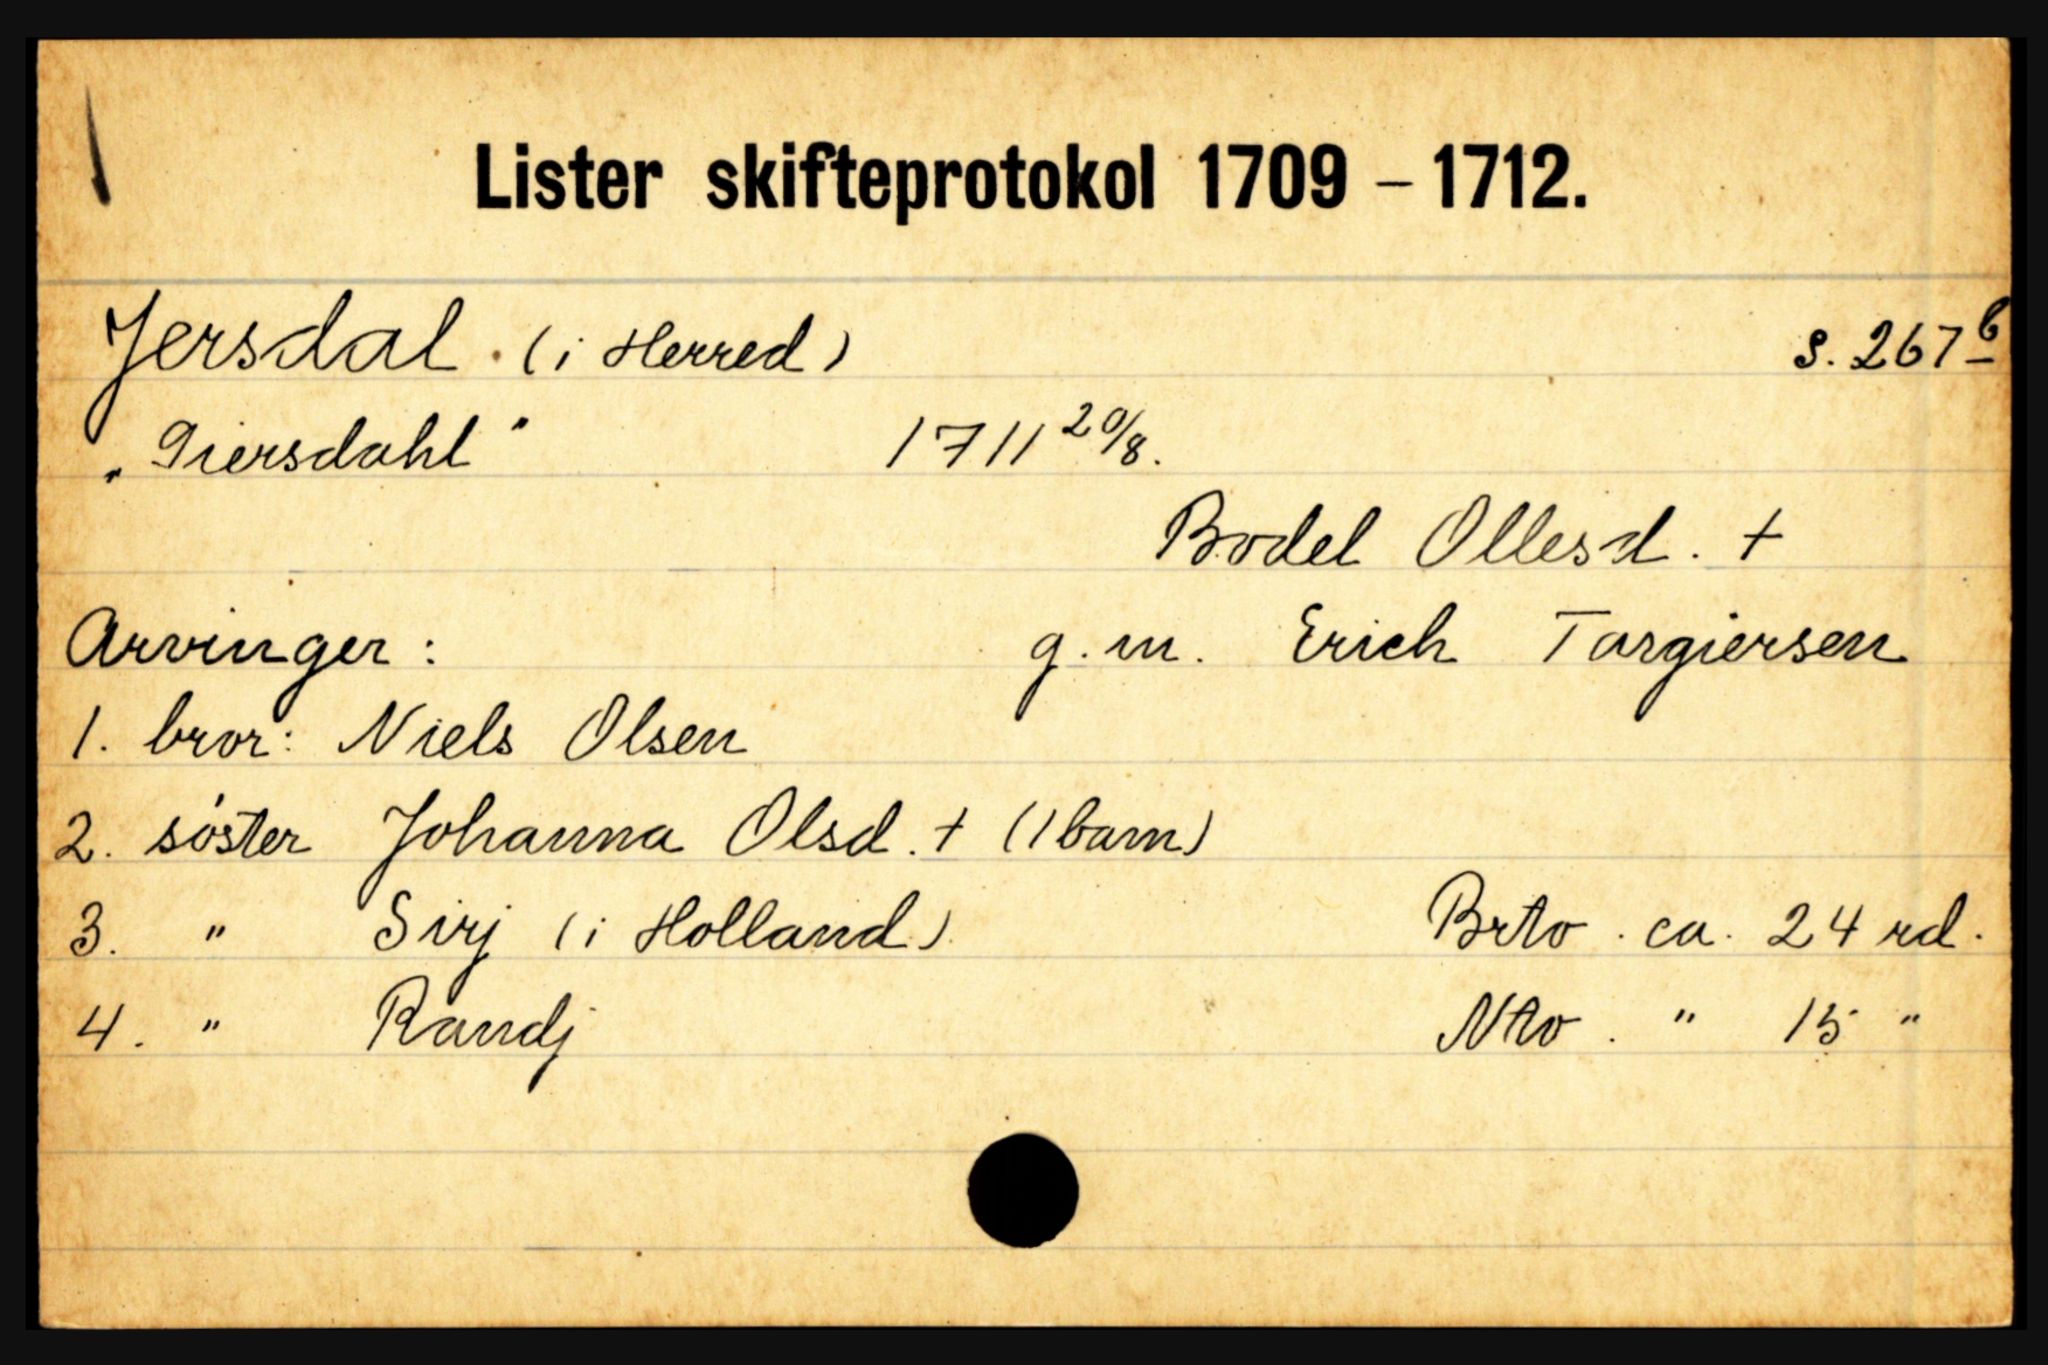 Lister skifteprotokol 1709 – 1712.
Jersdal. (i Herred) s. 267 b
„Giersdahl" 1711 20/8.
Bodel Ollesd. +
Arvinger: g.m. Erich Targiersen
1. bror: Niels Olsen
2. söster Johanna Olsd. + (1 barn)
3. " Sirj (i Holland) Brto. ca. 24 rd.
4. " Randj Nto. " 15 "